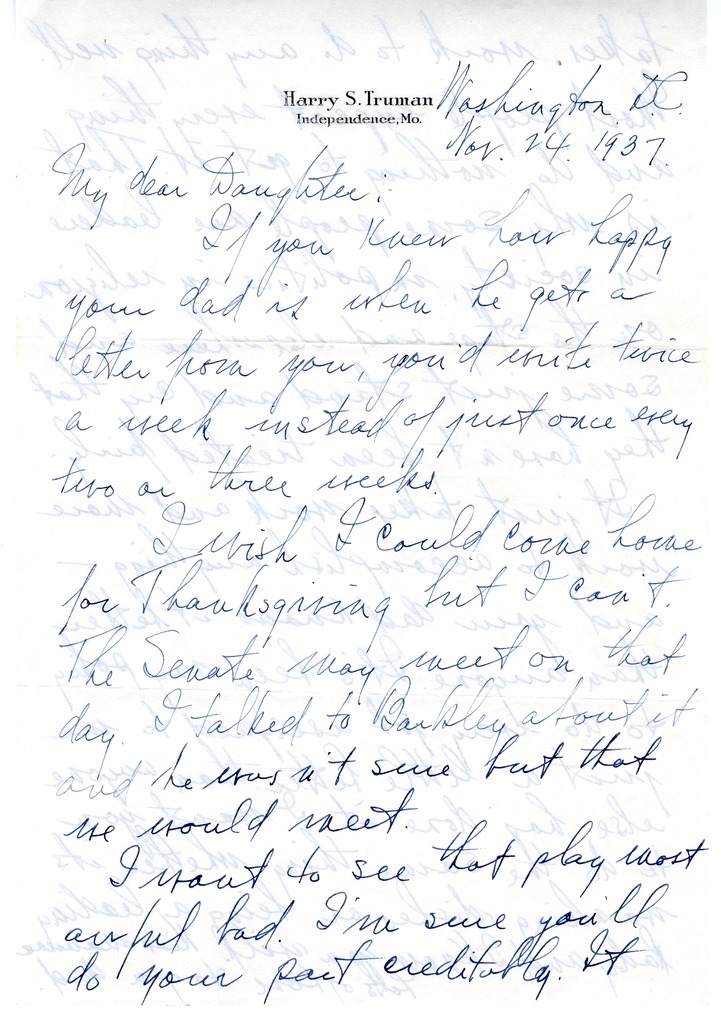 Harry S. Truman
Independence, Mo.
Washington, D.C.
Nov. 24, 1937.
My dear Daughter:
If you knew how happy
your dad is when he gets a
letter from you, you'd write twice
a week instead of just once every
two or three weeks.
I wish I could come home
for Thanksgiving but I can't.
The Senate may meet on that
day. I talked to Barkley about it
and he wasn't sure but that
we would meet.
I want to see that play most
awful bad. I'm sure you'll
do your part creditably. It